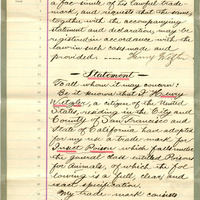 a fac-simile of his lawful trade-
mark, and request that the same,
together with the accompanying
statement and declaration, may be
registered in accordance with the
law in such cases made and
provided. Henry
Statement
To all whom it may concern:
Be it known that I, Henry
a citizen of the United
States, residing in the City and
County of San Francisco and
State of California have adopted
for my use a trade-mark for
Insect Poison which falls under
the general class entitled Poisons
for Animals, of which the fol-
lowing is a full, clear, and
exact specification.
My trade-mark consists